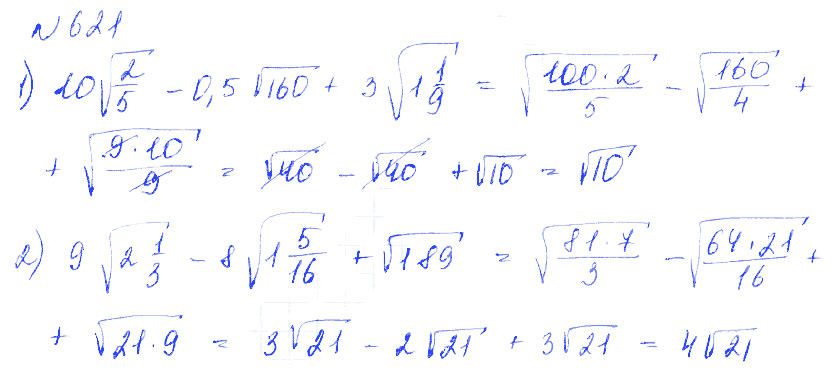 № 621
1) 10√(2/5) - 0,5 √160 + 3 √(1 1/9) = √(100·2/5) - √(160/4) +
+ √(9·10/9) = √40 - √40 + √10 = √10
2) 9 √(2 1/3) - 8 √(1 5/16) + √189 = √(81·7/3) - √(64·21/16) +
+ √(21·9) = 3√21 - 2√21 + 3√21 = 4√21